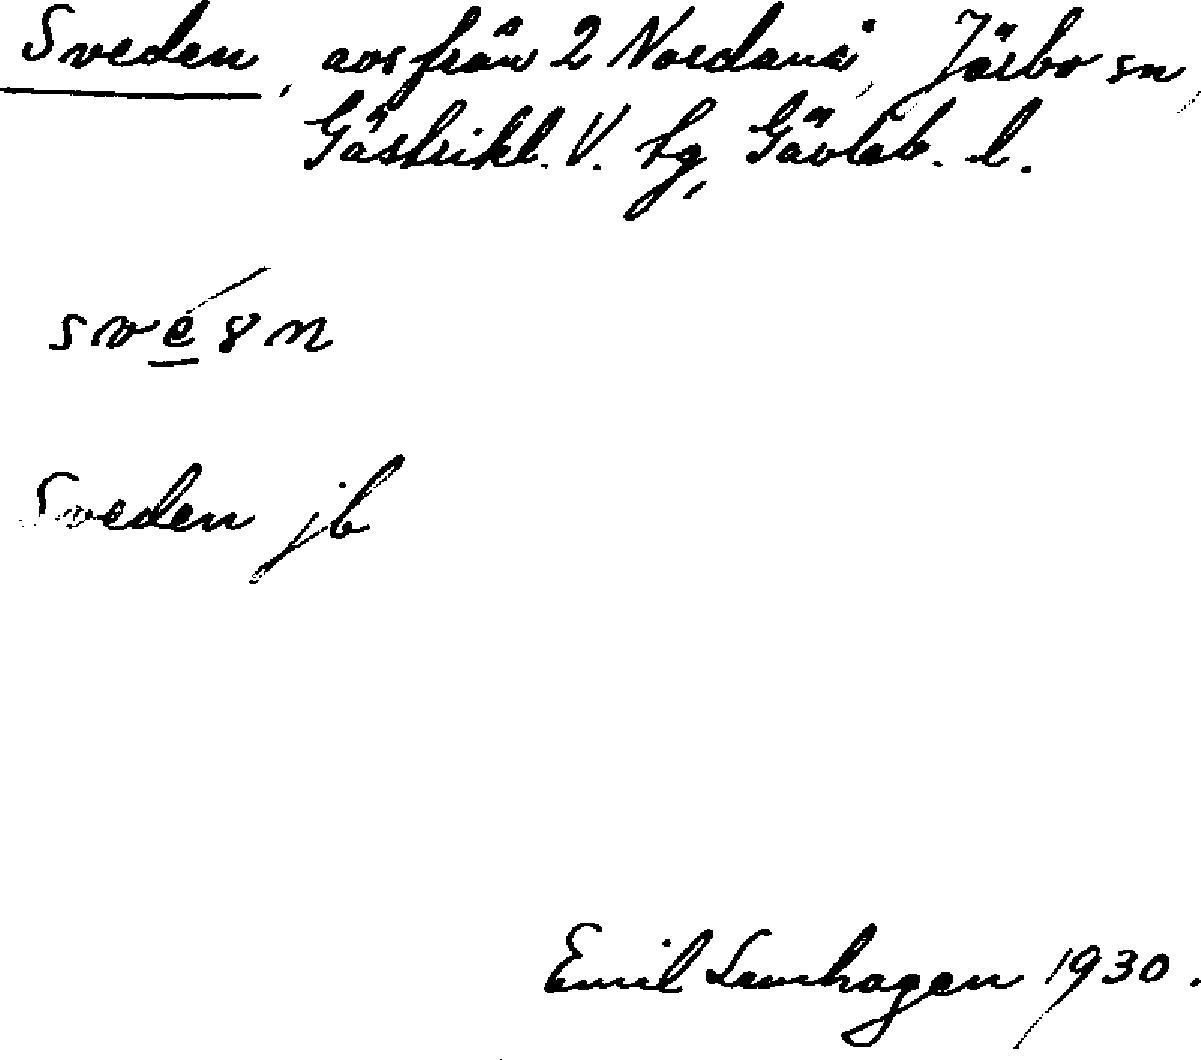 Sveden, avs från 2 Nordanå, Järbo sn,
Gästrikl. V. tg, Gävleb. l.
své8n
Sveden jb
Emil 1930.